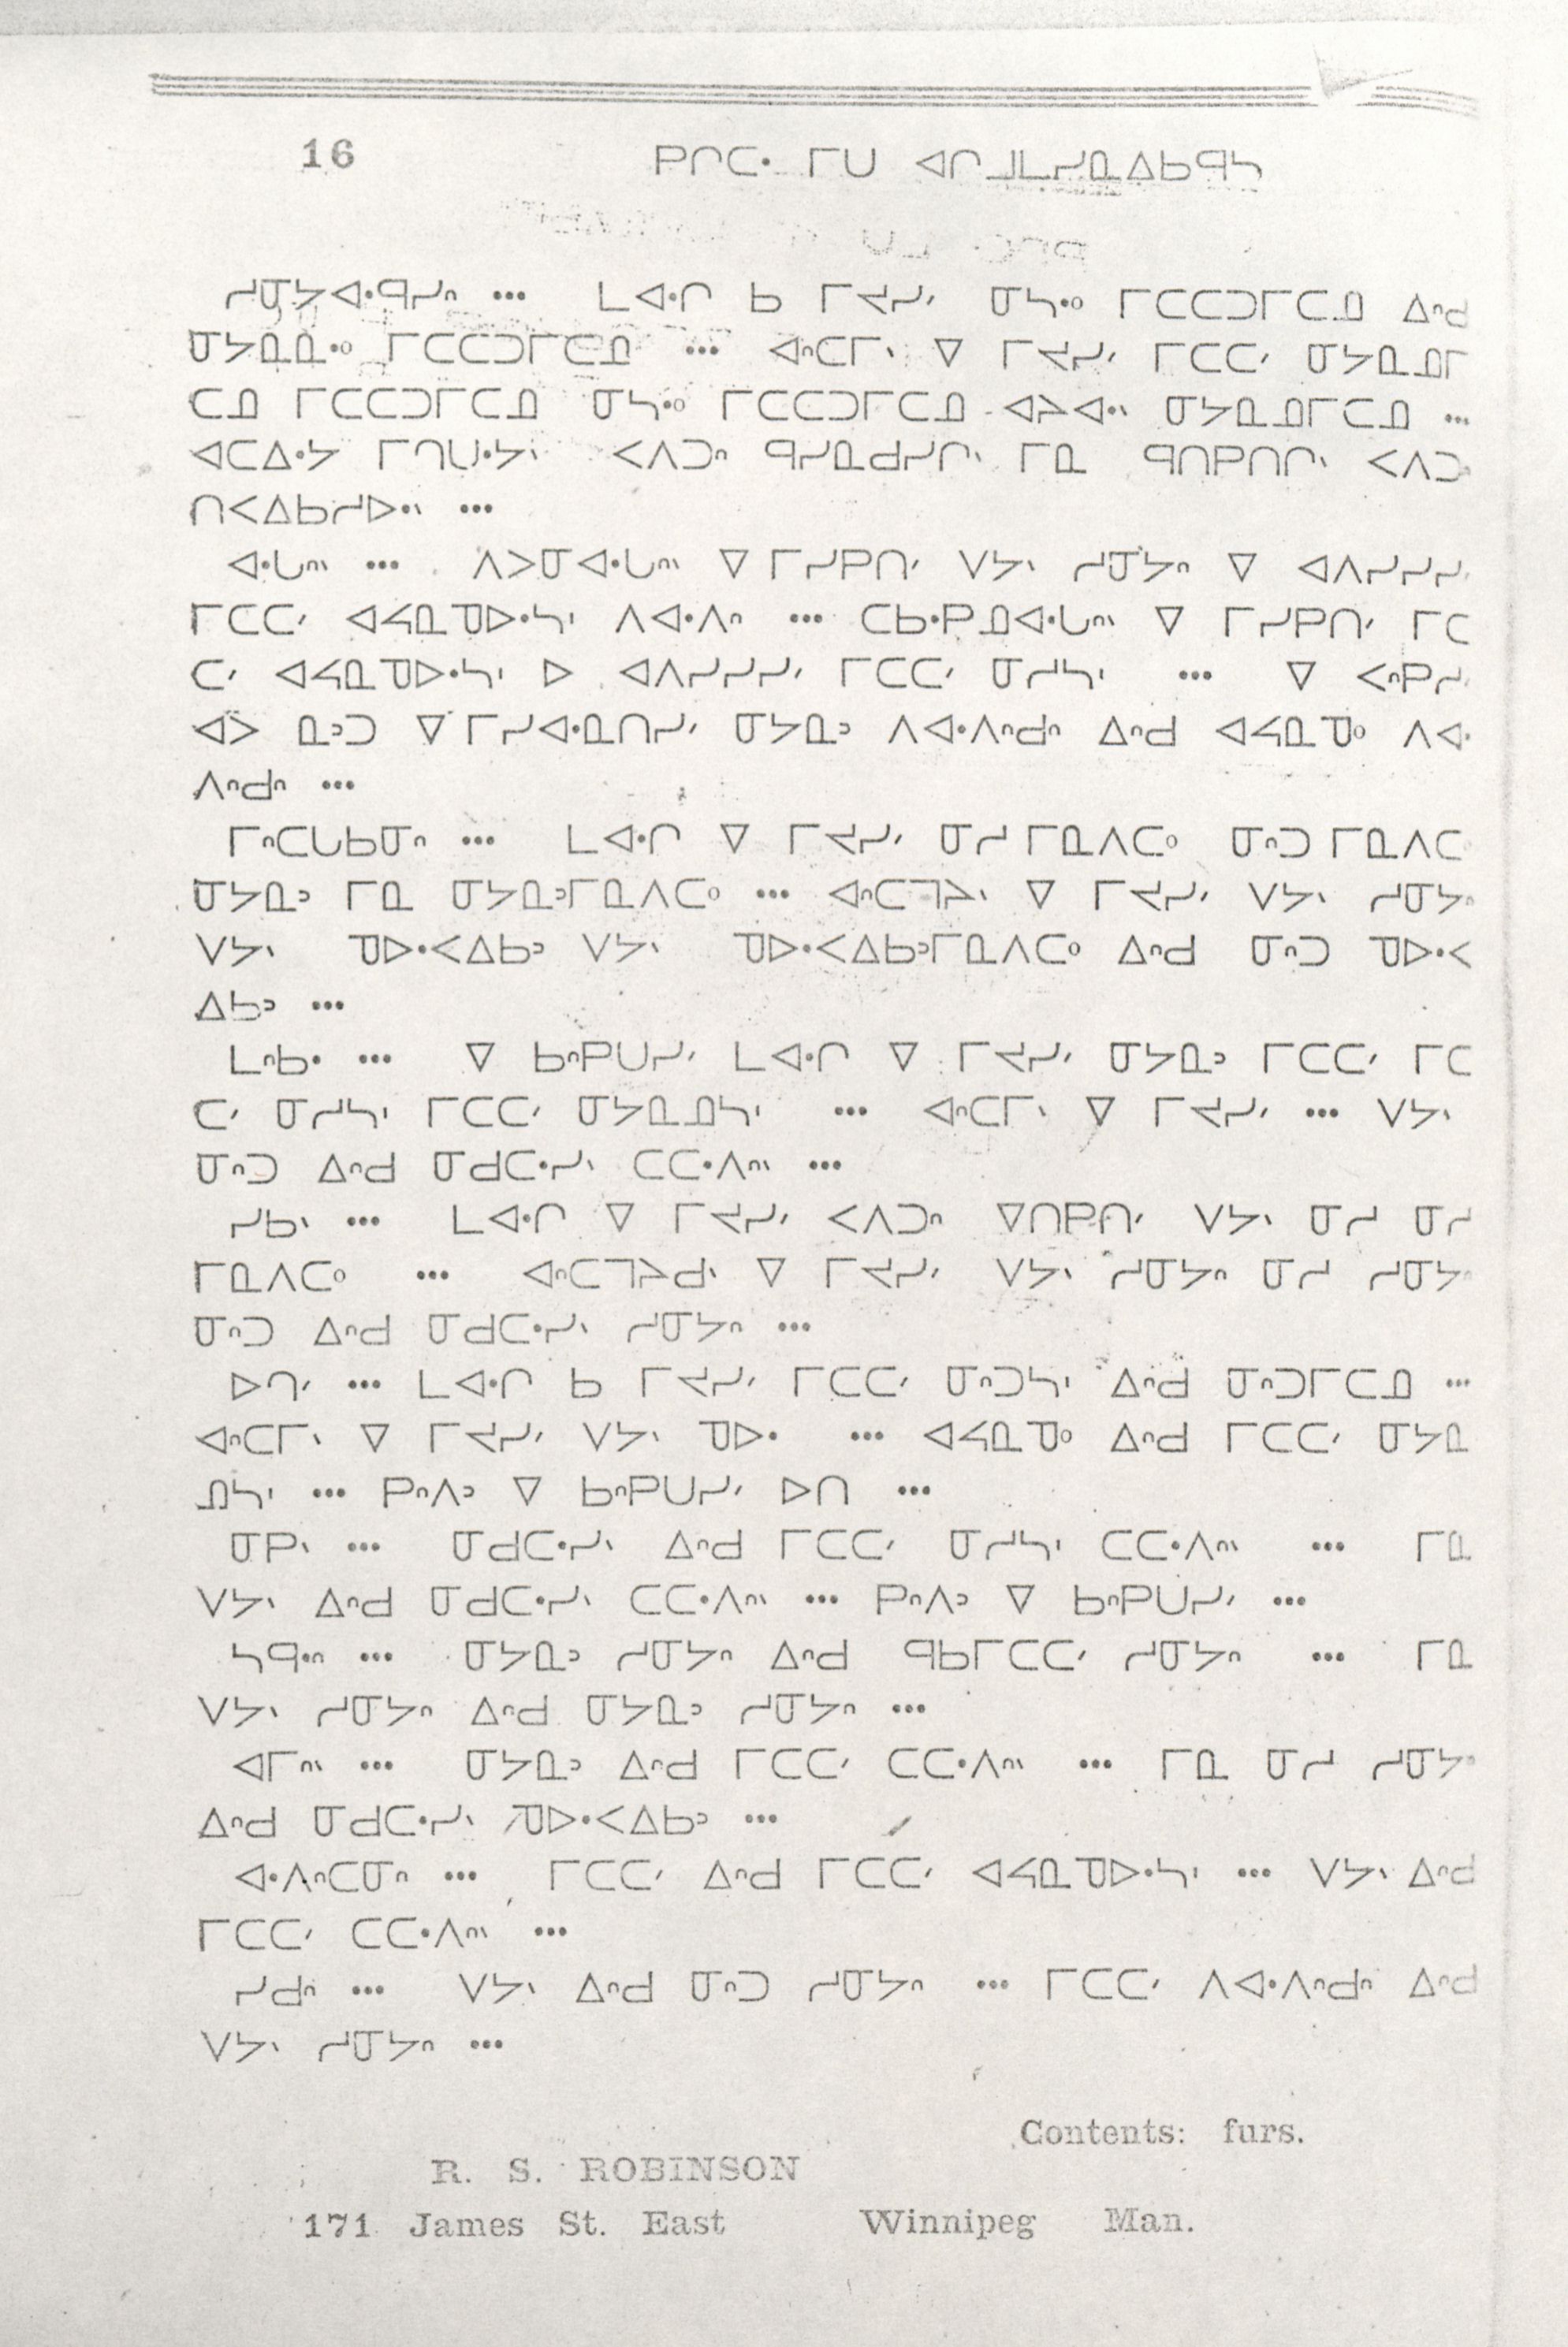 16 ᑭᒋᑕᐧ ᒥᑌ ᐊᒋᒧᒪᓯᓇᐃᑲᑫᓴ
ᓱᓂᔭᐊᐧᑫᓯᐢ ••• ᒪᐊᐧᒋ ᑲ ᒥᔪᓯᐟ ᓂᓴᐧᐤ ᒥᑕᑕᑐᒥᑕᓄ ᐃᐢᑯ
ᓂᔭᓇᓇᐧᐤ ᒥᑕᑕᑐᒥᑕᓄ ••• ᐊᐢᑕᒥᐠ ᐁ ᒥᔪᓯᐟ ᒥᑕᑕᐟ ᓂᔭᓇᓄᒥ
ᑕᓄ ᒥᑕᑕᑐᒥᑕᓄ ᓂᓴᐧᐤ ᒥᑕᑕᑐᒥᑕᓄ ᐊᔦᐊᐧᐠ ᓂᔭᓇᓄᒥᑕᓄ •••
ᐊᑕᐃᐧᔭ ᒥᒉᑌᐧᔭᐠ ᐸᐱᑐᐢ ᑫᓯᓇᑯᓯᒋᐠ ᒥᓇ ᑫᑎᑭᑎᒋᐠ ᐸᐱᑐᐢ
ᑎᐸᐃᑲᓱᐅᐧᐠ •••
ᐊᐧᒐᐢᐠ ••• ᐱᐳᓂᐊᐧᒐᐢᐠ ᐁ ᒥᓯᑭᑎᐟ ᐯᔭᐠ ᓱᓂᔭᐢ ᐁ ᐊᐱᓯᓯᓯᐟ
ᒥᑕᑕᐟ ᐊᔨᓇᓀᐅᐧᓴᑊ ᐱᐊᐧᐱᐢ ••• ᑕᑲᐧᑭᓄᐊᐧᒐᐢᐠ ᐁ ᒥᓯᑭᑎᐟ ᒥᑕ
ᑕᐟ ᐊᔨᓇᓀᐅᐧᓴᑊ ᐅ ᐊᐱᓯᓯᓯᐟ ᒥᑕᑕᐟ ᓂᓱᓴᑊ ••• ᐁ ᐸᐢᑭᓱ
ᐊᐳ ᓇᐣᑐ ᐁ ᒥᓯᐊᐧᓇᑎᓯᐟ ᓂᔭᓇᐣ ᐱᐊᐧᐱᐢᑯᐢ ᐃᐢᑯ ᐊᔨᓇᓀᐤ ᐱᐊᐧ
ᐱᐢᑯᐢ •••
ᒥᐢᑕᒐᑲᓂᐢ ••• ᒪᐊᐧᒋ ᐁ ᒥᔪᓯᐟ ᓂᓱ ᒥᓇᐱᑕᐤ ᓂᐢᑐ ᒥᓇᐱᑕᐤ
ᓂᔭᓇᐣ ᒥᓇ ᓂᔭᓇᐣᒥᓇᐱᑕᐤ ••• ᐊᐢᑕᒣᔦᐠ ᐁ ᒥᔪᓯᐟ ᐯᔭᐠ ᓱᓂᔭᐢ
ᐯᔭᐠ ᓀᐅᐧᐸᐃᑲᐣ ᐯᔭᐠ ᓀᐅᐧᐸᐃᑲᐣᒥᓇᐱᑕᐤ ᐃᐢᑯ ᓂᐢᑐ ᓀᐅᐧᐸ
ᐃᑲᐣ •••
ᒪᐢᑲᐧ ••• ᐁ ᑲᐢᑭᑌᓯᐟ ᒪᐊᐧᒋ ᐁ ᒥᔪᓯᐟ ᓂᔭᓇᐣ ᒥᑕᑕᐟ ᒥᑕ
ᑕᐟ ᓂᓱᓴᑊ ᒥᑕᑕᐟ ᓂᔭᓇᓄᓴᑊ ••• ᐊᐢᑕᒥᐠ ᐁ ᒥᔪᓯᐟ ••• ᐯᔭᐠ
ᓂᐢᑐ ᐃᐢᑯ ᓂᑯᑕᐧᓯᐠ ᑕᑕᐧᐱᐢᐠ •••
ᓯᑲᐠ ••• ᒪᐊᐧᒋ ᐁ ᒥᔪᓯᐟ ᐸᐱᑐᐢ ᐁᑎᑭᑎᐟ ᐯᔭᐠ ᓂᓱ ᓂᓱ
ᒥᓇᐱᑕᐤ ••• ᐊᐢᑕᒣᔦᑯᐠ ᐁ ᒥᔪᓯᐟ ᐯᔭᐠ ᓱᓂᔭᐢ ᓂᓱ ᓱᓂᔭᐢ
ᓂᐢᑐ ᐃᐢᑯ ᓂᑯᑕᐧᓯᐠ ᓱᓂᔭᐢ •••
ᐅᒉᐟ ••• ᒪᐊᐧᒋ ᑲ ᒥᔪᓯᐟ ᒥᑕᑕᐟ ᓂᐢᑐᓴᑊ ᐃᐢᑯ ᓂᐢᑐᒥᑕᓄ •••
ᐊᐢᑕᒥᐠ ᐁ ᒥᔪᓯᐟ ᐯᔭᐠ ᓀᐅᐧ ••• ᐊᔨᓇᓀᐤ ᐃᐢᑯ ᒥᑕᑕᐟ ᓂᔭᓇ
ᓄᓴᑊ ••• ᑭᐢᐱᐣ ᐁ ᑲᐢᑭᑌᓯᐟ ᐅᒉ •••
ᓂᑭᐠ ••• ᓂᑯᑕᐧᓯᐠ ᐃᐢᑯ ᒥᑕᑕᐟ ᓂᓱᓴᑊ ᑕᑕᐧᐱᐢᐠ ••• ᒥᓇ
ᐯᔭᐠ ᐃᐢᑯ ᓂᑯᑕᐧᓯᐠ ᑕᑕᐧᐱᐢᐠ ••• ᑭᐢᐱᐣ ᐁ ᑲᐢᑭᑌᓯᐟ •••
ᓴᑫᐧᐢ ••• ᓂᔭᓇᐣ ᓱᓂᔭᐢ ᐃᐢᑯ ᑫᑲᒥᑕᑕᐟ ᓱᓂᔭᐢ ••• ᒥᓇ
ᐯᔭᐠ ᓱᓂᔭᐢ ᐃᐢᑯ ᓂᔭᓇᐣ ᓱᓂᔭᐢ •••
ᐊᒥᐢᐠ ••• ᓂᔭᓇᐣ ᐃᐢᑯ ᒥᑕᑕᐟ ᑕᑕᐧᐱᐢᐠ ••• ᒥᓇ ᓂᓱ ᓱᓂᔭᐢ
ᐃᐢᑯ ᓂᑯᑕᐧᓯᐠ ᓀᐅᐧᐸᐃᑲᐣ •••
ᐊᐧᐱᐢᑕᓂᐢ ••• ᒥᑕᑕᐟ ᐃᐢᑯ ᒥᑕᑕᐟ ᐊᔨᓇᓀᐅᐧᓴᑊ ••• ᐯᔭᐠ ᐃᐢᑯ
ᒥᑕᑕᐟ ᑕᑕᐧᐱᐢᐠ •••
ᓯᑯᐢ ••• ᐯᔭᐠ ᐃᐢᑯ ᓂᐢᑐ ᓱᓂᔭᐢ ••• ᒥᑕᑕᐟ ᐱᐊᐧᐱᐢᑯᐢ ᐃᐢᑯ
ᐯᔭᐠ ᓱᓂᔭᐢ •••
Contents: furs.
R. S. ROBINSON
171 James St. East Winnipeg Man.